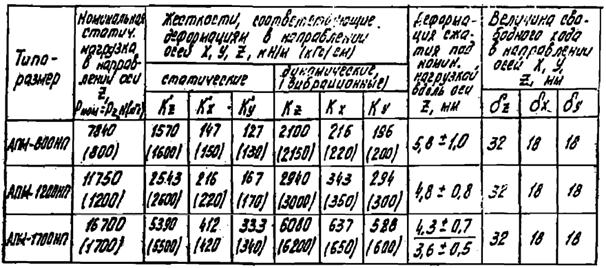 Типо-
размер
Номинальная
статич.
нагрузка
в направ-
лении оси
Z,
Рном=Рz, Н(кгс)
Жесткости, соответствующие
деформациям в направлении
осей X, У, Z, кН/м (кгс/см)
статические
динамические,
(вибрационные)
Kz Kx Kу Kz Kx Kу
Деформа-
ция сжа-
тия под
номин.
нагрузкой
вдоль оси
Z, мм
Величина сво-
бодного хода
в направлении
осей X, У,
Z, мм
δz δx δу
АПМ-800НП 7840 1570 147 127 2100 216 196 5,8±1,0 32 18 18
(800) (1600) (150) (130) (2150) (220) (200)
АПМ-1200НП 11750 2543 216 167 2940 343 294 4,8±0,8 32 18 18
(1200) (2600) (220) (170) (3000) (350) (300)
АПМ-1700НП 16700 5390 412 333 6080 637 588 4,3±0,7 32 18 18
(1700) (5500) (420 (340) (6200) (650) (600) 3,6±0,5